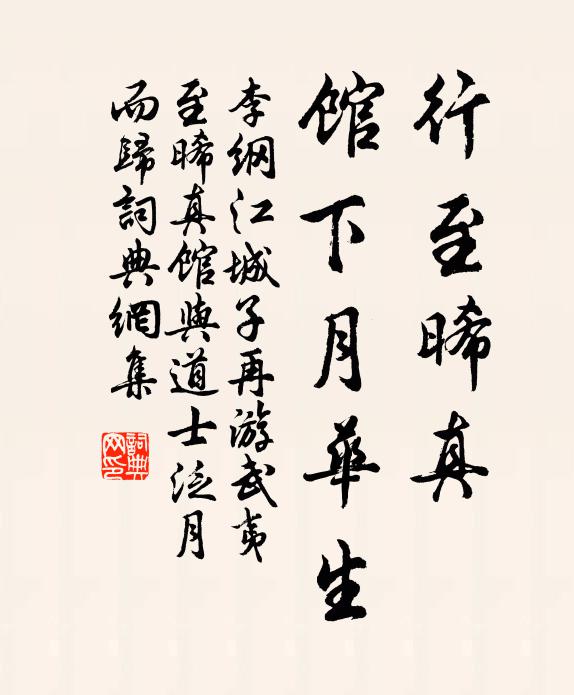 行至晞真
馆下月华生
李綱江城子再游武夷
至晞真馆與道士泛月
而歸詞典網集
詞典网印